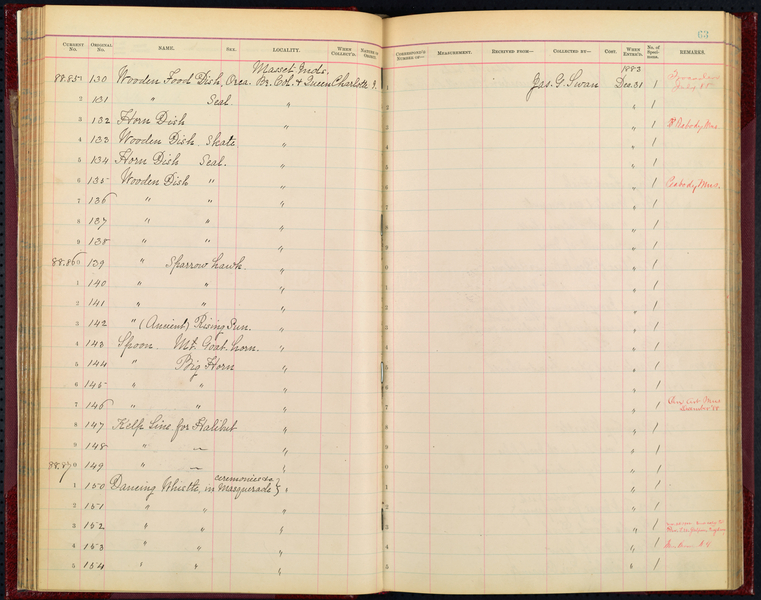 63
CURRENT No. ORIGINAL No. NAME. SEX. LOCALITY. WHEN COLLECT'D. NATURE OF OBJECT.
COLLECTOR'S NUMBER OR— MEASUREMENT. RECEIVED FROM— COLLECTED BY— COST. WHEN ENTER'D. No. of Specimens. REMARKS.
Masset Inds. 1883
88.857 130 Wooden Food Dish, Orca. Br. Col. & Queen Charlotte I. 1 Jas. G. Swan Dec. 31 1
2 131 " Seal " 2 " 1
3 132 Horn Dish " 3 " 1 Peabody Mus.
4 133 Wooden Dish Skate " 4 " 1
5 134 Horn Dish Seal. " 5 " 1
6 135 Wooden Dish " " 6 " 1 Peabody Mus.
7 136 " " " 7 " 1
8 137 " " " 8 " 1
9 138 " " " 9 " 1
88.860 139 " Sparrow hawk. " 0 " 1
1 140 " " " 1 " 1
2 141 " " " 2 " 1
3 142 " (Ancient) Rising Sun. " 3 " 1
4 143 Spoon. Mt. Goat horn. " 4 " 1
5 144 " Big Horn " 5 " 1
6 145 " " " 6 " 1
7 146 " " " 7 " 1
8 147 Kelp Line for Halibut " 8 " 1
9 148 " " " 9 " 1
88.870 149 " " " 0 " 1
1 150 Dancing Whistle, in ceremonies &c Masquerade } " 1 " 1
2 151 " " " 2 " 1
3 152 " " " 3 " 1
4 153 " " " 4 " 1
5 154 " " " 5 " 1